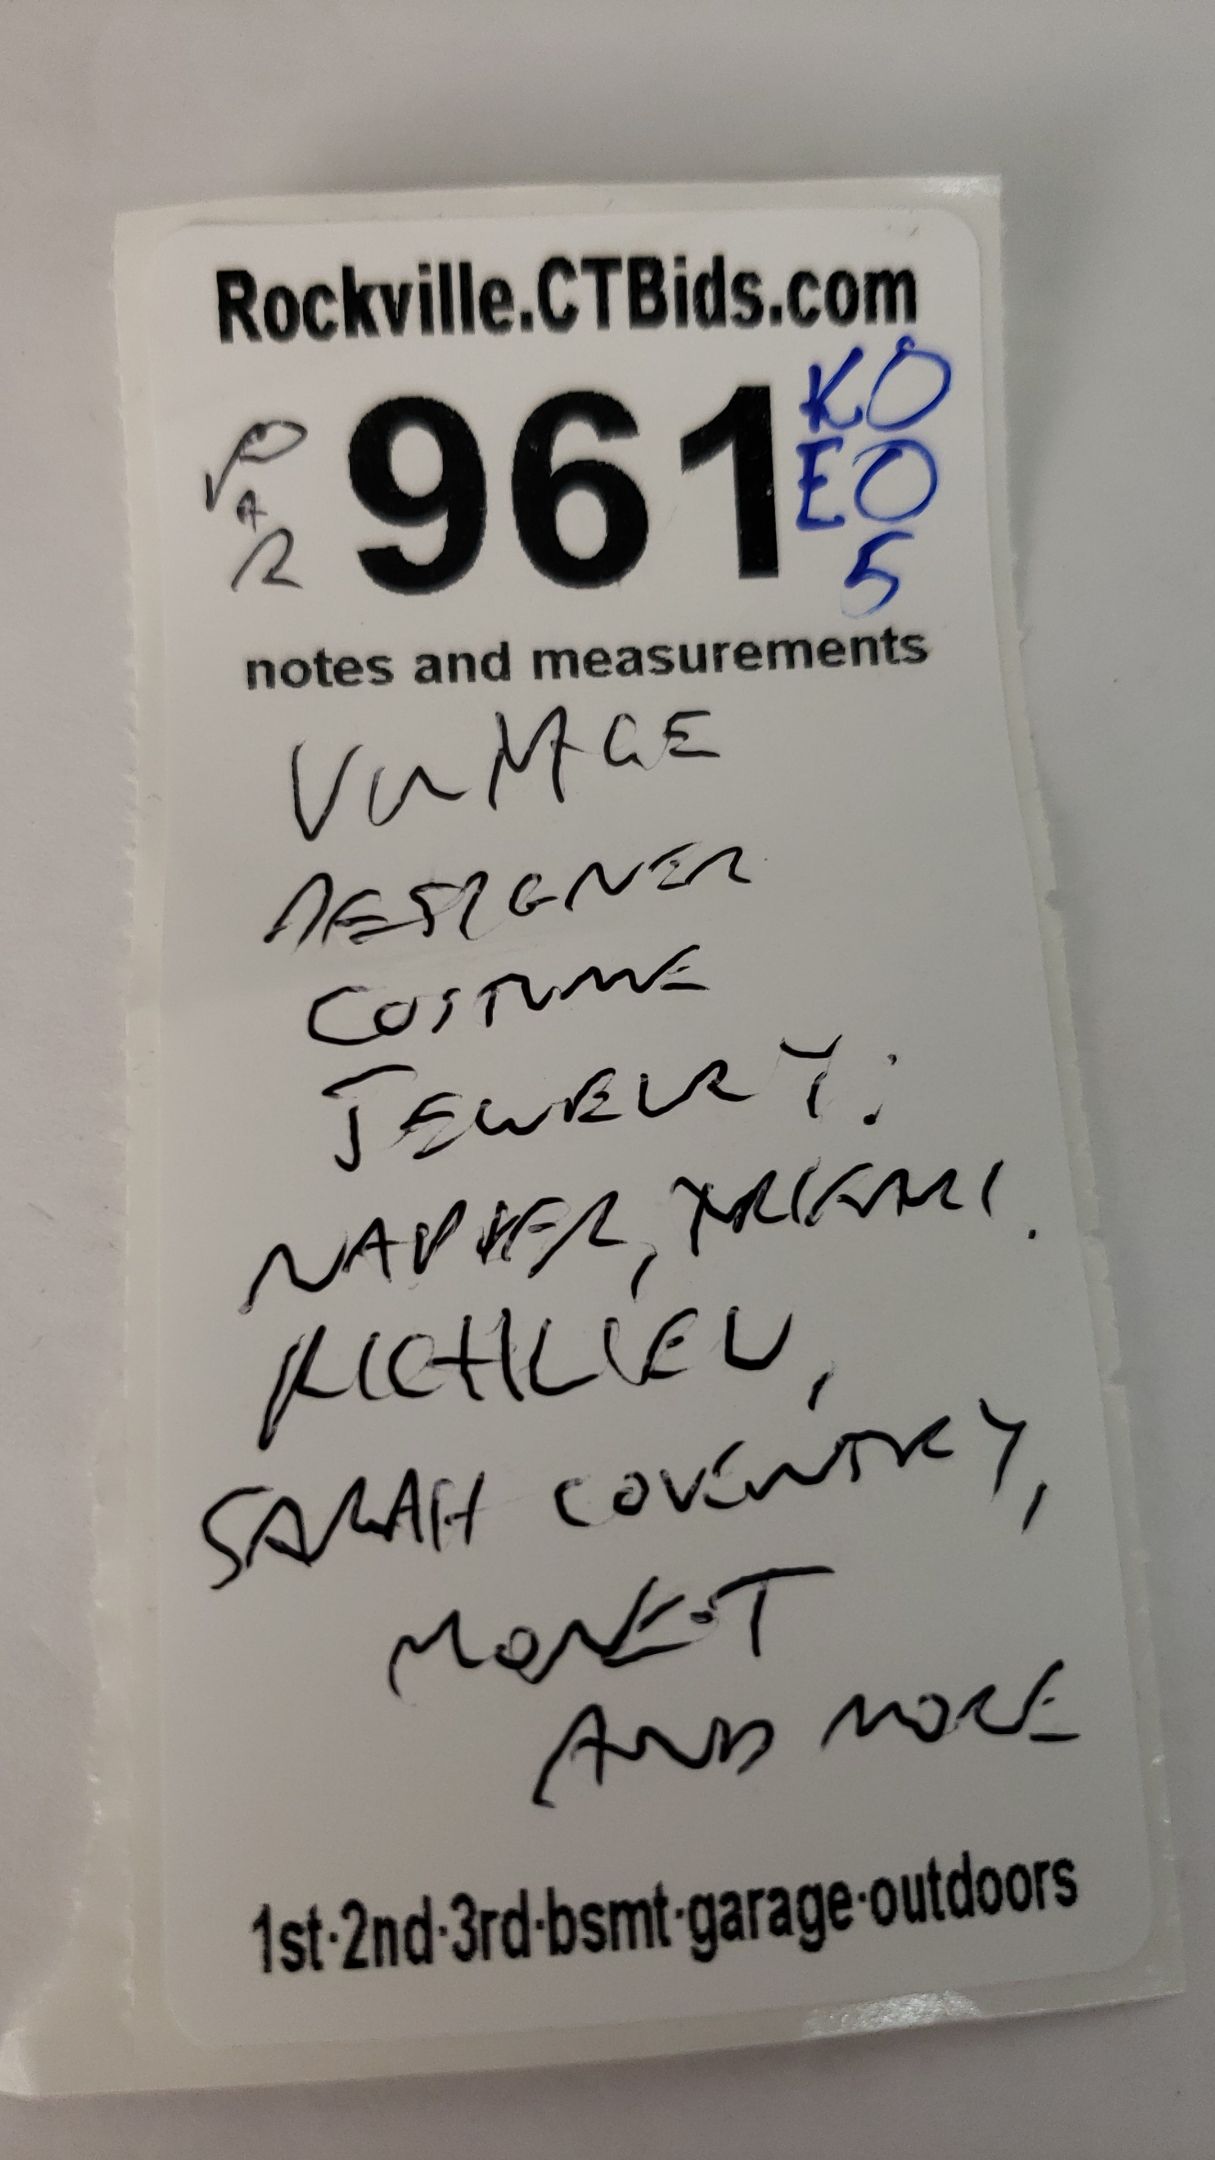 Rockville.CTBids.com
961
KO
EO
5
notes and measurements
VINTAGE
DESIGNER
COSTUME
JEWELRY:
NAPIER, TRIFARI.
RICHLIEU,
SARAH COVENTRY,
MONET
AND MORE
1st·2nd·3rd·bsmt·garage·outdoors